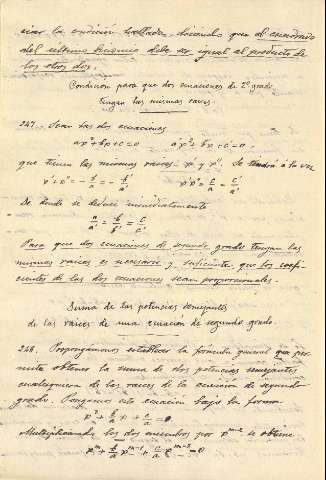 ciar la condición hallada, diciendo que el cuadrado
del último término debe ser igual al producto de
los otros dos.
Condición para que dos ecuaciones de 2º grado
tengan las mismas raíces.
247. Sean las dos ecuaciones
ax²+bx+c=0 a'x²+b'x+c'=0
que tienen las mismas raíces x' y x''. Se tendrá a la vez
x'+x''=-b/a=-b'/a' x'x''=c/a=c'/a'
De donde se deduce inmediatamente
a/a'=b/b'=c/c'
Para que dos ecuaciones de segundo grado tengan las
mismas raíces es necesario y suficiente que los coefi-
cientes de las dos ecuaciones sean proporcionales.
Suma de las potencias semejantes
de las raíces de una ecuación de segundo grado.
248. Propongámonos establecer la fórmula general que per-
mita obtener la suma de dos potencias semejantes
cualesquiera de las raíces de la ecuación de segundo
grado. Pongamos esta ecuación bajo la forma
x²+b/a x+c/a=0
Multiplicando los dos miembros por x^m-2 se obtiene
x^m+b/a x^m-1+c/a x^m-2=0